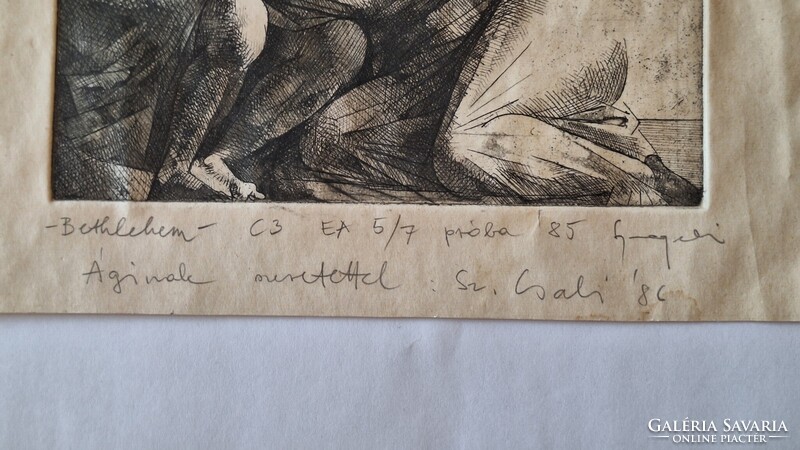 -Bethlehem- C3 EA 5/7 próba '85
Áginak szeretettel : Sz. Csabi '86
GALÉRIA SAVARIA
ONLINE PIACTÉR